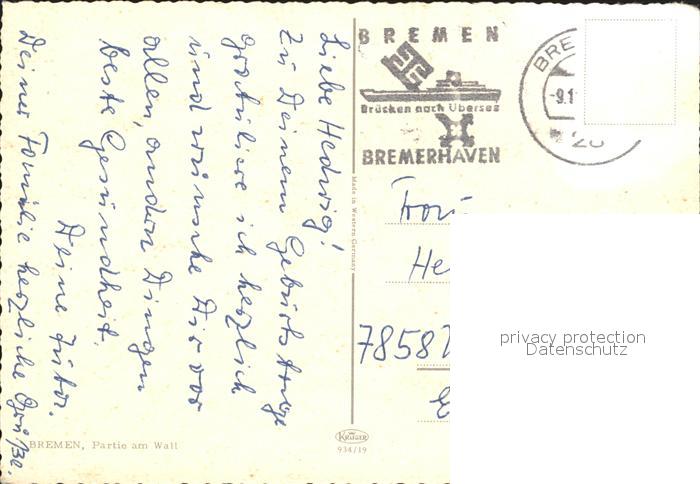 Liebe Hedwig!
Zu Deinem Geburtstage
gratuliere ich herzlich
und wünsche Dir vor
allen, andern Dingen
beste Gesundheit.
Deine
Deiner Familie herzliche Grüße.
BREMEN, Partie am Wall
Made in Western Germany
KRÜGER
934/19
BREMEN
Brücken nach Übersee
BREMERHAVEN
BRE
-9.1
20
Frau
He
7858
privacy protection
Datenschutz